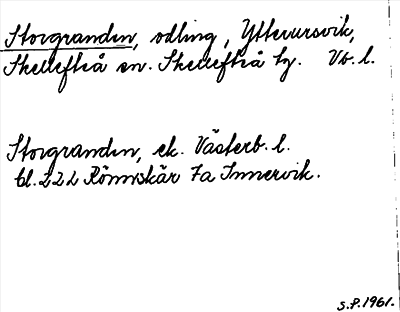 Storgrundan, odling, Yttervursvik,
Skellefteå sn. Skellefteå tg. Vb. l.
Storgrundan, ek. Västerb. l.
bl. 222 Rönnskär 7a Innervik.
S.P. 1961.